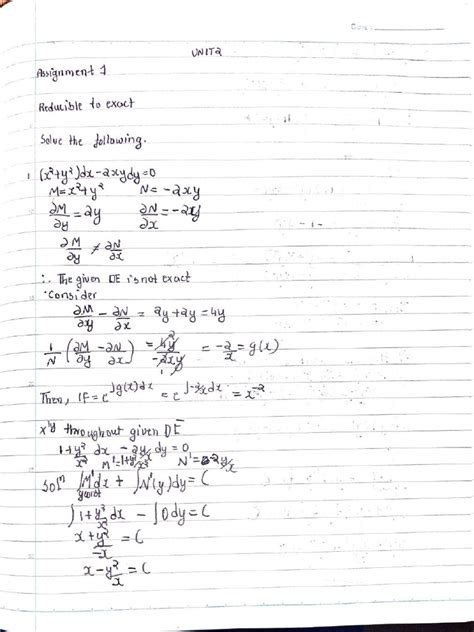 Date:
UNIT2
Assignment 1
Reducible to exact
Solve the following.
1 (x²+y²)dx-2xydy=0
M=x²+y² N=-2xy
∂M/∂y=2y ∂N/∂x=-2y
∂M/∂y ≠ ∂N/∂x
∴ The given DE is not exact
Consider
∂M/∂y - ∂N/∂x = 2y+2y=4y
1/N (∂M/∂y - ∂N/∂x) = 4y/-2xy = -2/x = g(x)
Then, IF=e^∫g(x)dx = e^∫-2/x dx = x^-2
xly throughout given DE
1+y²/x² dx - 2y/x dy=0
M'=1+y²/x² N'=-2y/x
Solⁿ ∫M'dx + ∫N'(y)dy=C
y const
∫1+y²/x² dx - ∫0dy=C
x+y²/-x = C
x-y²/x = C